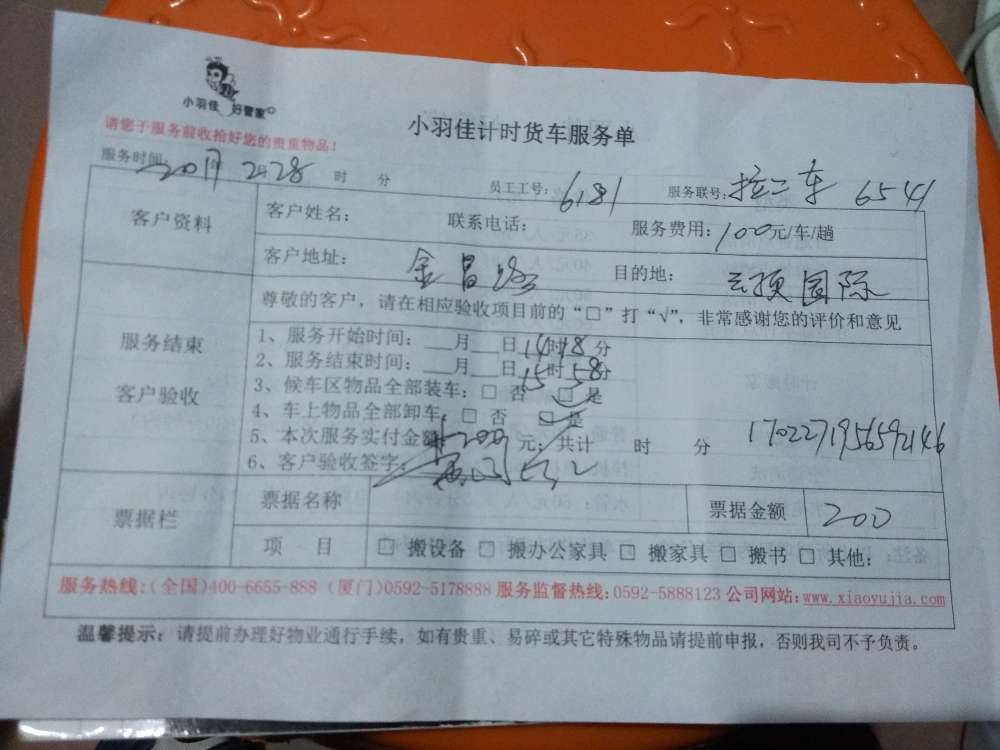 小羽佳 好管家
小羽佳计时货车服务单
请您于服务前收拾好您的贵重物品!
服务时间: 2017 2 28 时 分 员工工号: 6181 服务联号: 拉二车 6541
客户资料 客户姓名: 联系电话: 服务费用: 100元/车/趟
客户地址: 金昌路 目的地: 云顶国际
尊敬的客户,请在相应验收项目前的“□”打“√”,非常感谢您的评价和意见
服务结束 客户验收
1、服务开始时间: __月__日14时18分
2、服务结束时间: __月__日15时58分
3、候车区物品全部装车: □ 否 □ 是
4、车上物品全部卸车: □ 否 □ 是
5、本次服务实付金额 200 元; 共计 时 分
6、客户验收签字:
票据栏 票据名称 票据金额 200
项 目 □ 搬设备 □ 搬办公家具 □ 搬家具 □ 搬书 □ 其他:
服务热线:(全国)400-6655-888 (厦门)0592-5178888 服务监督热线:0592-5888123 公司网站:www.xiaoyujia.com
温馨提示: 请提前办理好物业通行手续,如有贵重、易碎或其它特殊物品请提前申报,否则我司不予负责。